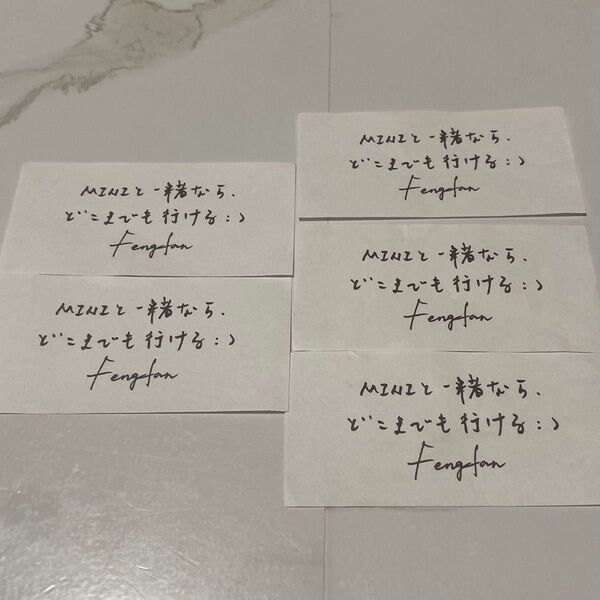 MINIと一緒なら、
どこまでも行ける:)
Fengfan
MINIと一緒なら、
どこまでも行ける:)
Fengfan
MINIと一緒なら、
どこまでも行ける:)
Fengfan
MINIと一緒なら、
どこまでも行ける:)
Fengfan
MINIと一緒なら、
どこまでも行ける:)
Fengfan